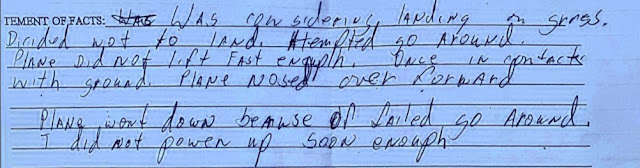 TEMENT OF FACTS: WAS WAS considering landing on grass.
Dicided not to land. Atempted go Around.
Plane did not lift fast enough. Once in contacts
with ground. Plane nosed over forward
Plane went down because of failed go Around.
I did not power up soon enough